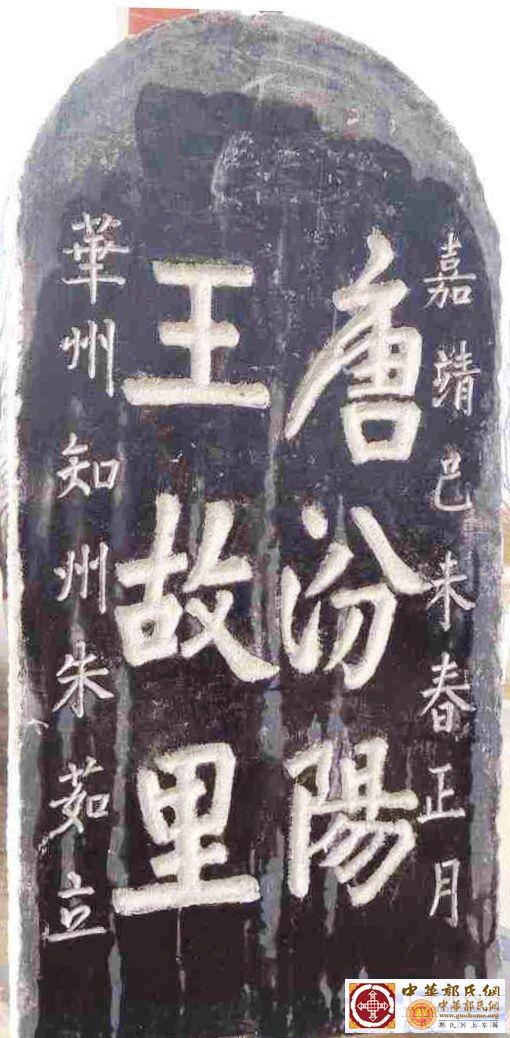 嘉靖己未春正月
唐汾陽
王故里
華州知州朱茹立
中華郭氏網
中華郭氏網
www.guohome.org